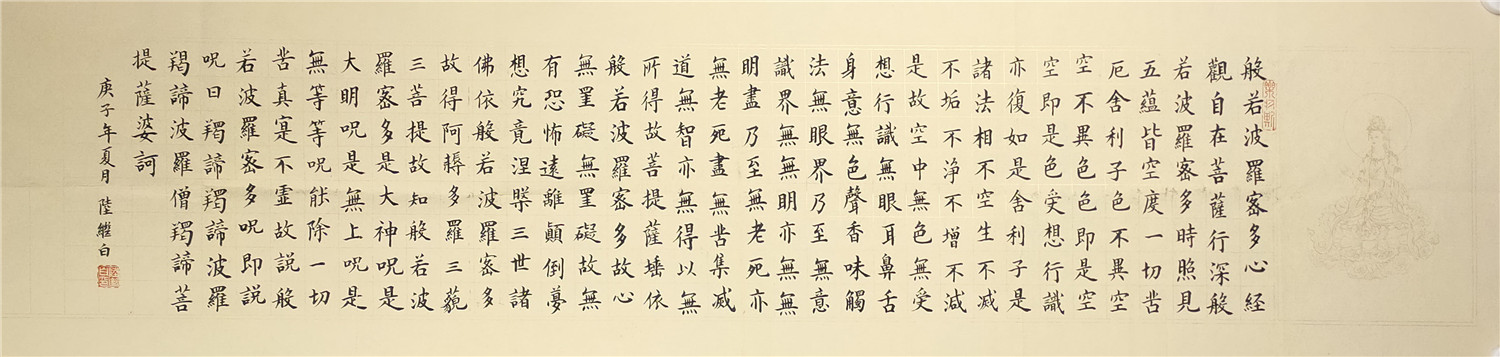 般若波羅宻多心經
觀自在菩薩行深般
若波羅宻多時照見
五蘊皆空度一切苦
厄舍利子色不異空
空不異色色即是空
空即是色受想行識
亦復如是舍利子是
諸法相不空生不滅
不垢不淨不增不減
是故空中無色無受
想行識無眼耳鼻舌
身意無色聲香味觸
法無眼界乃至無意
識界無無明亦無無
明盡乃至無老死亦
無老死盡無苦集滅
道無智亦無得以無
所得故菩提薩埵依
般若波羅宻多故心
無罣礙無罣礙故無
有恐怖遠離顛倒夢
想究竟涅槃三世諸
佛依般若波羅宻多
故得阿耨多羅三藐
三菩提故知般若波
羅宻多是大神呪是
大明呪是無上呪是
無等等呪能除一切
苦真寔不虛故説般
若波羅宻多呪即説
呪曰羯諦羯諦波羅
羯諦波羅僧羯諦菩
提薩婆訶
庚子年夏月 陸繼白